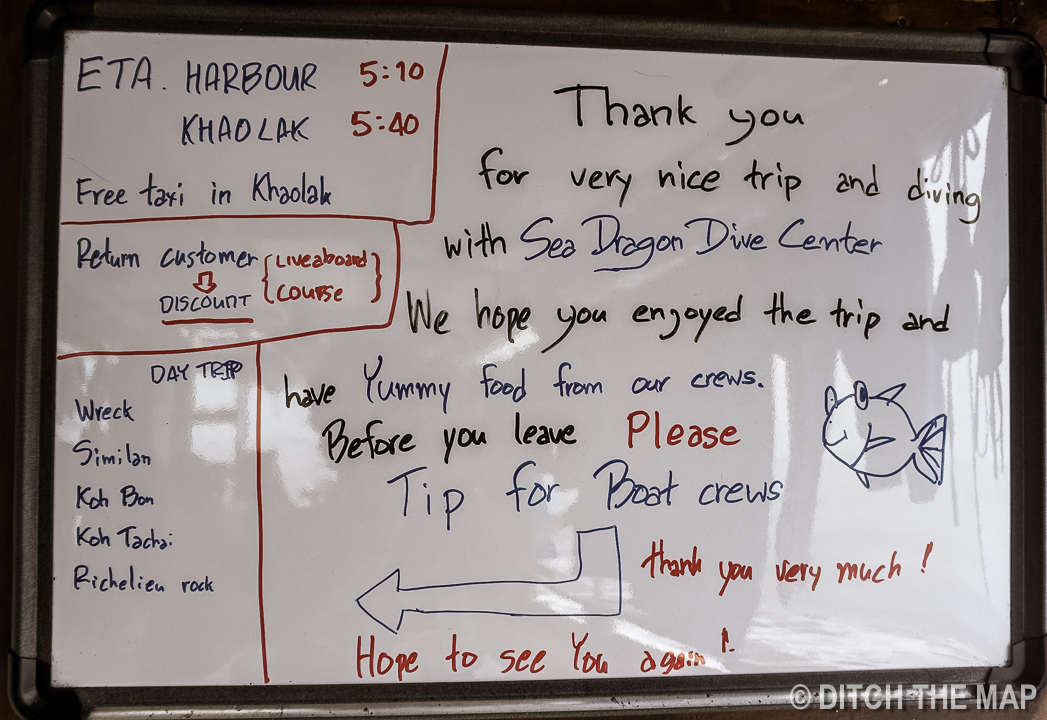 ETA. HARBOUR 5:10
KHAOLAK 5:40
Free taxi in Khaolak
Return customer {Liveaboard
DISCOUNT course}
DAY TRIP
Wreck
Similan
Koh Bon
Koh Tachai
Richelieu rock
Thank you
for very nice trip and diving
with Sea Dragon Dive Center
We hope you engoyed the trip and
have Yummy food from our crews.
Before you leave Please
Tip for Boat crews
thank you very much !
Hope to see You again !
© DITCH THE MAP